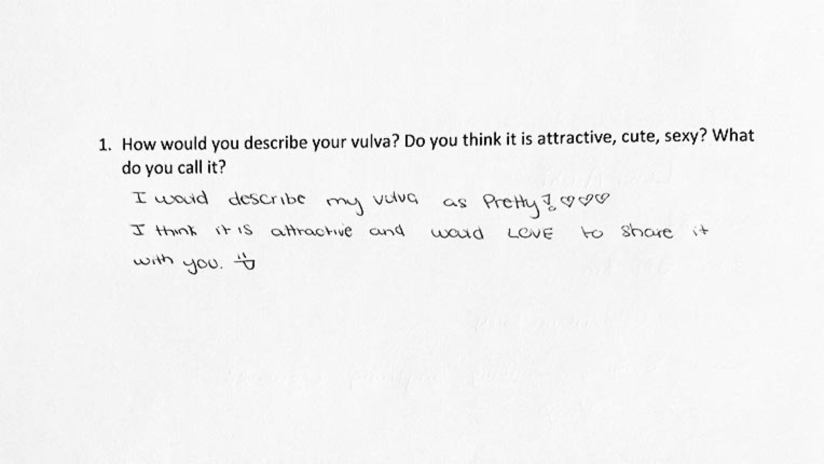 1. How would you describe your vulva? Do you think it is attractive, cute, sexy? What
do you call it?
I would describe my vulva as Pretty! ♡♡♡
I think it is attractive and would LOVE to share it
with you.